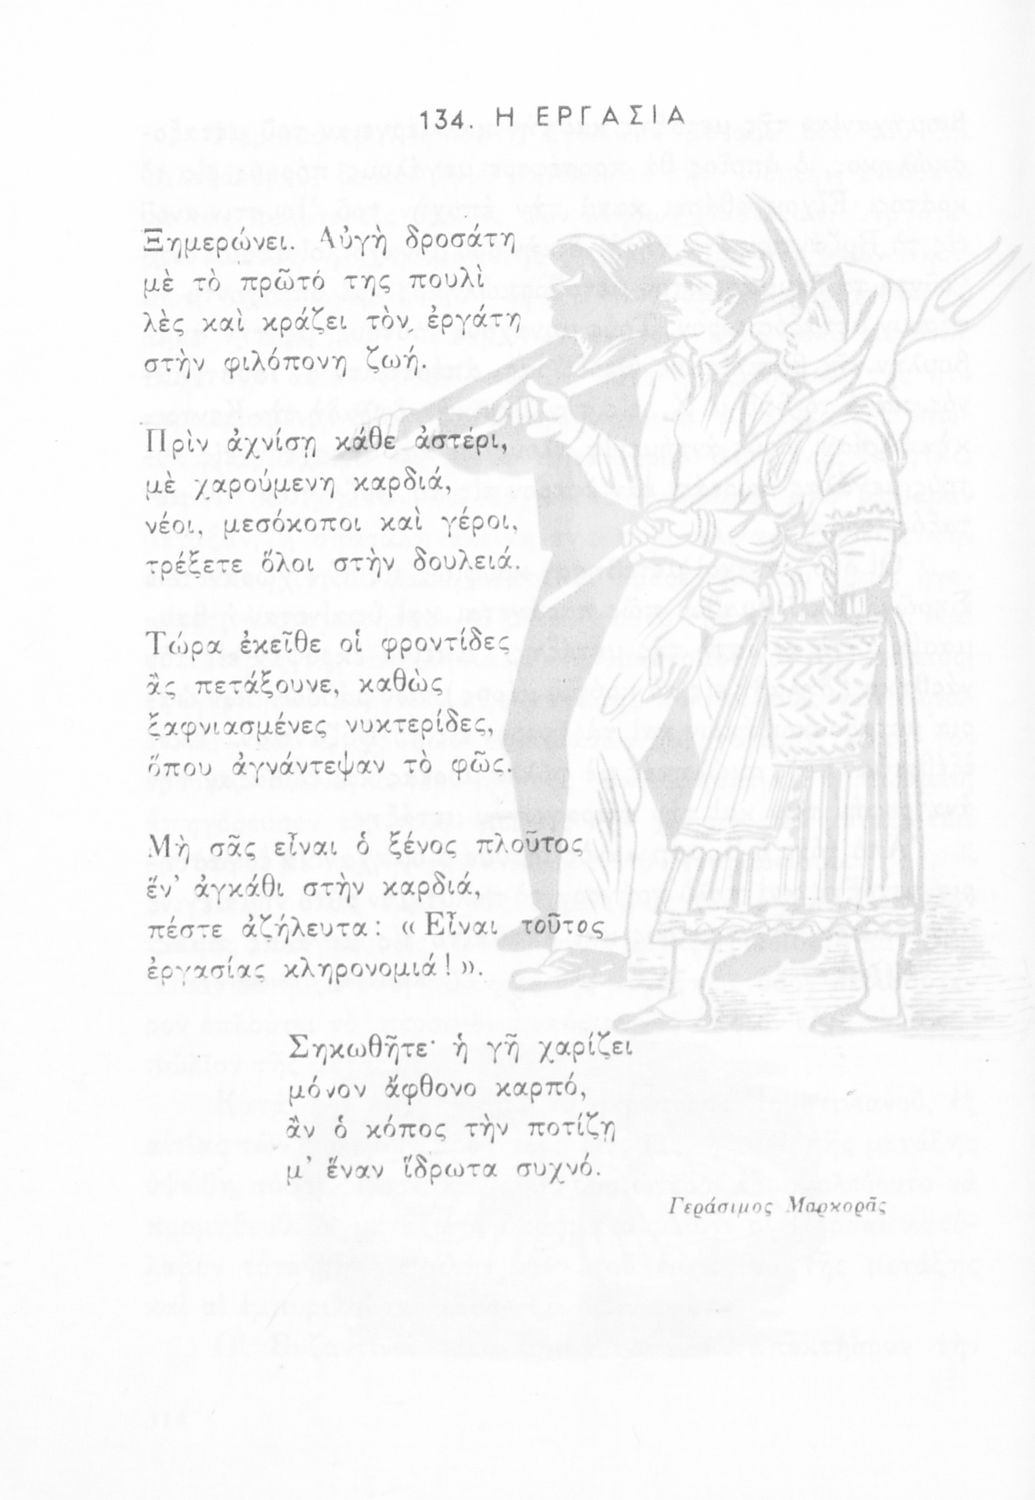 134. Η ΕΡΓΑΣΙΑ
Ξημερώνει. Αὐγὴ δροσάτη
μὲ τὸ πρῶτό της πουλὶ
λὲς καὶ κράζει τὸν ἐργάτη
στὴν φιλόπονη ζωή.
Πρὶν ἀχνίσῃ κάθε ἀστέρι,
μὲ χαρούμενη καρδιά,
νέοι, μεσόκοποι καὶ γέροι,
τρέξετε ὅλοι στὴν δουλειά.
Τώρα ἐκεῖθε οἱ φροντίδες
ἂς πετάξουνε, καθὼς
ξαφνιασμένες νυκτερίδες,
ὁπου ἀγνάντεψαν τὸ φῶς.
Μὴ σᾶς εἶναι ὁ ξένος πλοῦτος
ἕν' ἀγκάθι στὴν καρδιά,
πέστε ἀζήλευτα: «Εἶναι τοῦτος
ἐργασίας κληρονομιά!».
Σηκωθῆτε· ἡ γῆ χαρίζει
μόνον ἄφθονο καρπό,
ἂν ὁ κόπος τὴν ποτίζῃ
μ' ἕναν ἵδρωτα συχνό.
Γεράσιμος Μαρκορᾶς